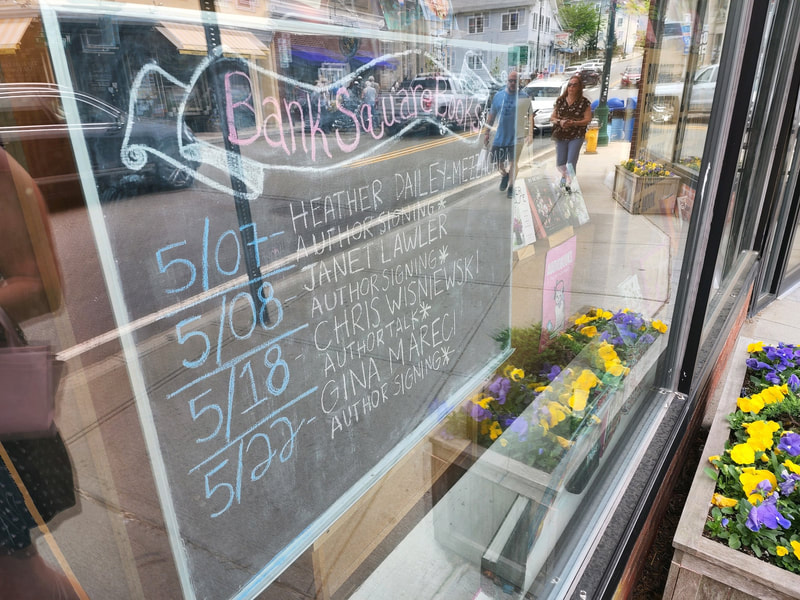 Bank Square Books
5/07- HEATHER DAILEY-
AUTHOR SIGNING*
5/08- JANET LAWLER
AUTHOR SIGNING*
5/18- CHRIS WISNIEWSKI
AUTHOR TALK*
5/22- GINA MARECI
AUTHOR SIGNING*